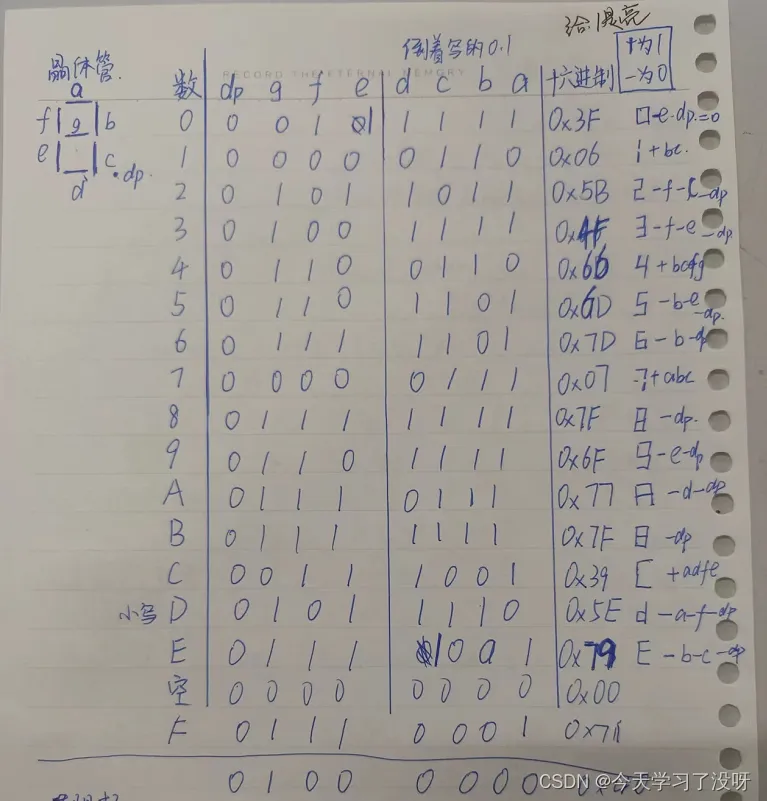 给1是亮
倒着写的0.1
十为1
一为0
晶体管.
RECORD THE ETERNAL MEMORY
数 dp g f e d c b a 十六进制
a
f g b
e c
d dp
0 0 0 1 1 1 1 1 1 0x3F 口-e.dp.=0
1 0 0 0 0 0 1 1 0 0x06 1+bc.
2 0 1 0 1 1 0 1 1 0x5B 2-f-c-dp
3 0 1 0 0 1 1 1 1 0x4F 3-f-e-dp
4 0 1 1 0 0 1 1 0 0x66 4+bcfg
5 0 1 1 0 1 1 0 1 0x6D 5-b-e-dp.
6 0 1 1 1 1 1 0 1 0x7D 6-b-dp
7 0 0 0 0 0 1 1 1 0x07 7+abc
8 0 1 1 1 1 1 1 1 0x7F 8-dp.
9 0 1 1 0 1 1 1 1 0x6F 9-e-dp
A 0 1 1 1 0 1 1 1 0x77 A-d-dp
B 0 1 1 1 1 1 1 1 0x7F 8-dp
C 0 0 1 1 1 0 0 1 0x39 [ +adfe
小写 D 0 1 0 1 1 1 1 0 0x5E d-a-f-dp
E 0 1 1 1 1 0 0 1 0x79 E-b-c-dp
空 0 0 0 0 0 0 0 0 0x00
F 0 1 1 1 0 0 0 1 0x71
0 1 0 0 0 0 0 0
CSDN @今天学习了没呀